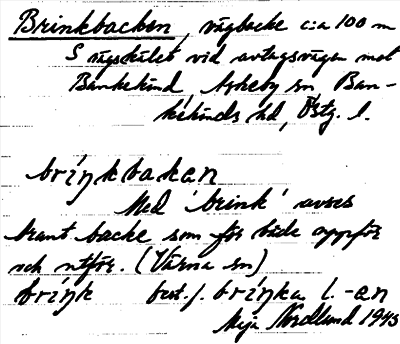 Brinkbacken, vägbacke c:a 100 m
S vägskälet vid avtagsvägen mot
Bankekind, Askeby sn, Ban-
kekinds hd, Östg. l.
briŋkbakan
Med 'brink' avses
brant backe som för både uppför
och utför. (Värna sn)
briŋk best. f. briŋka, l. -an
Maja Nordlund 1945